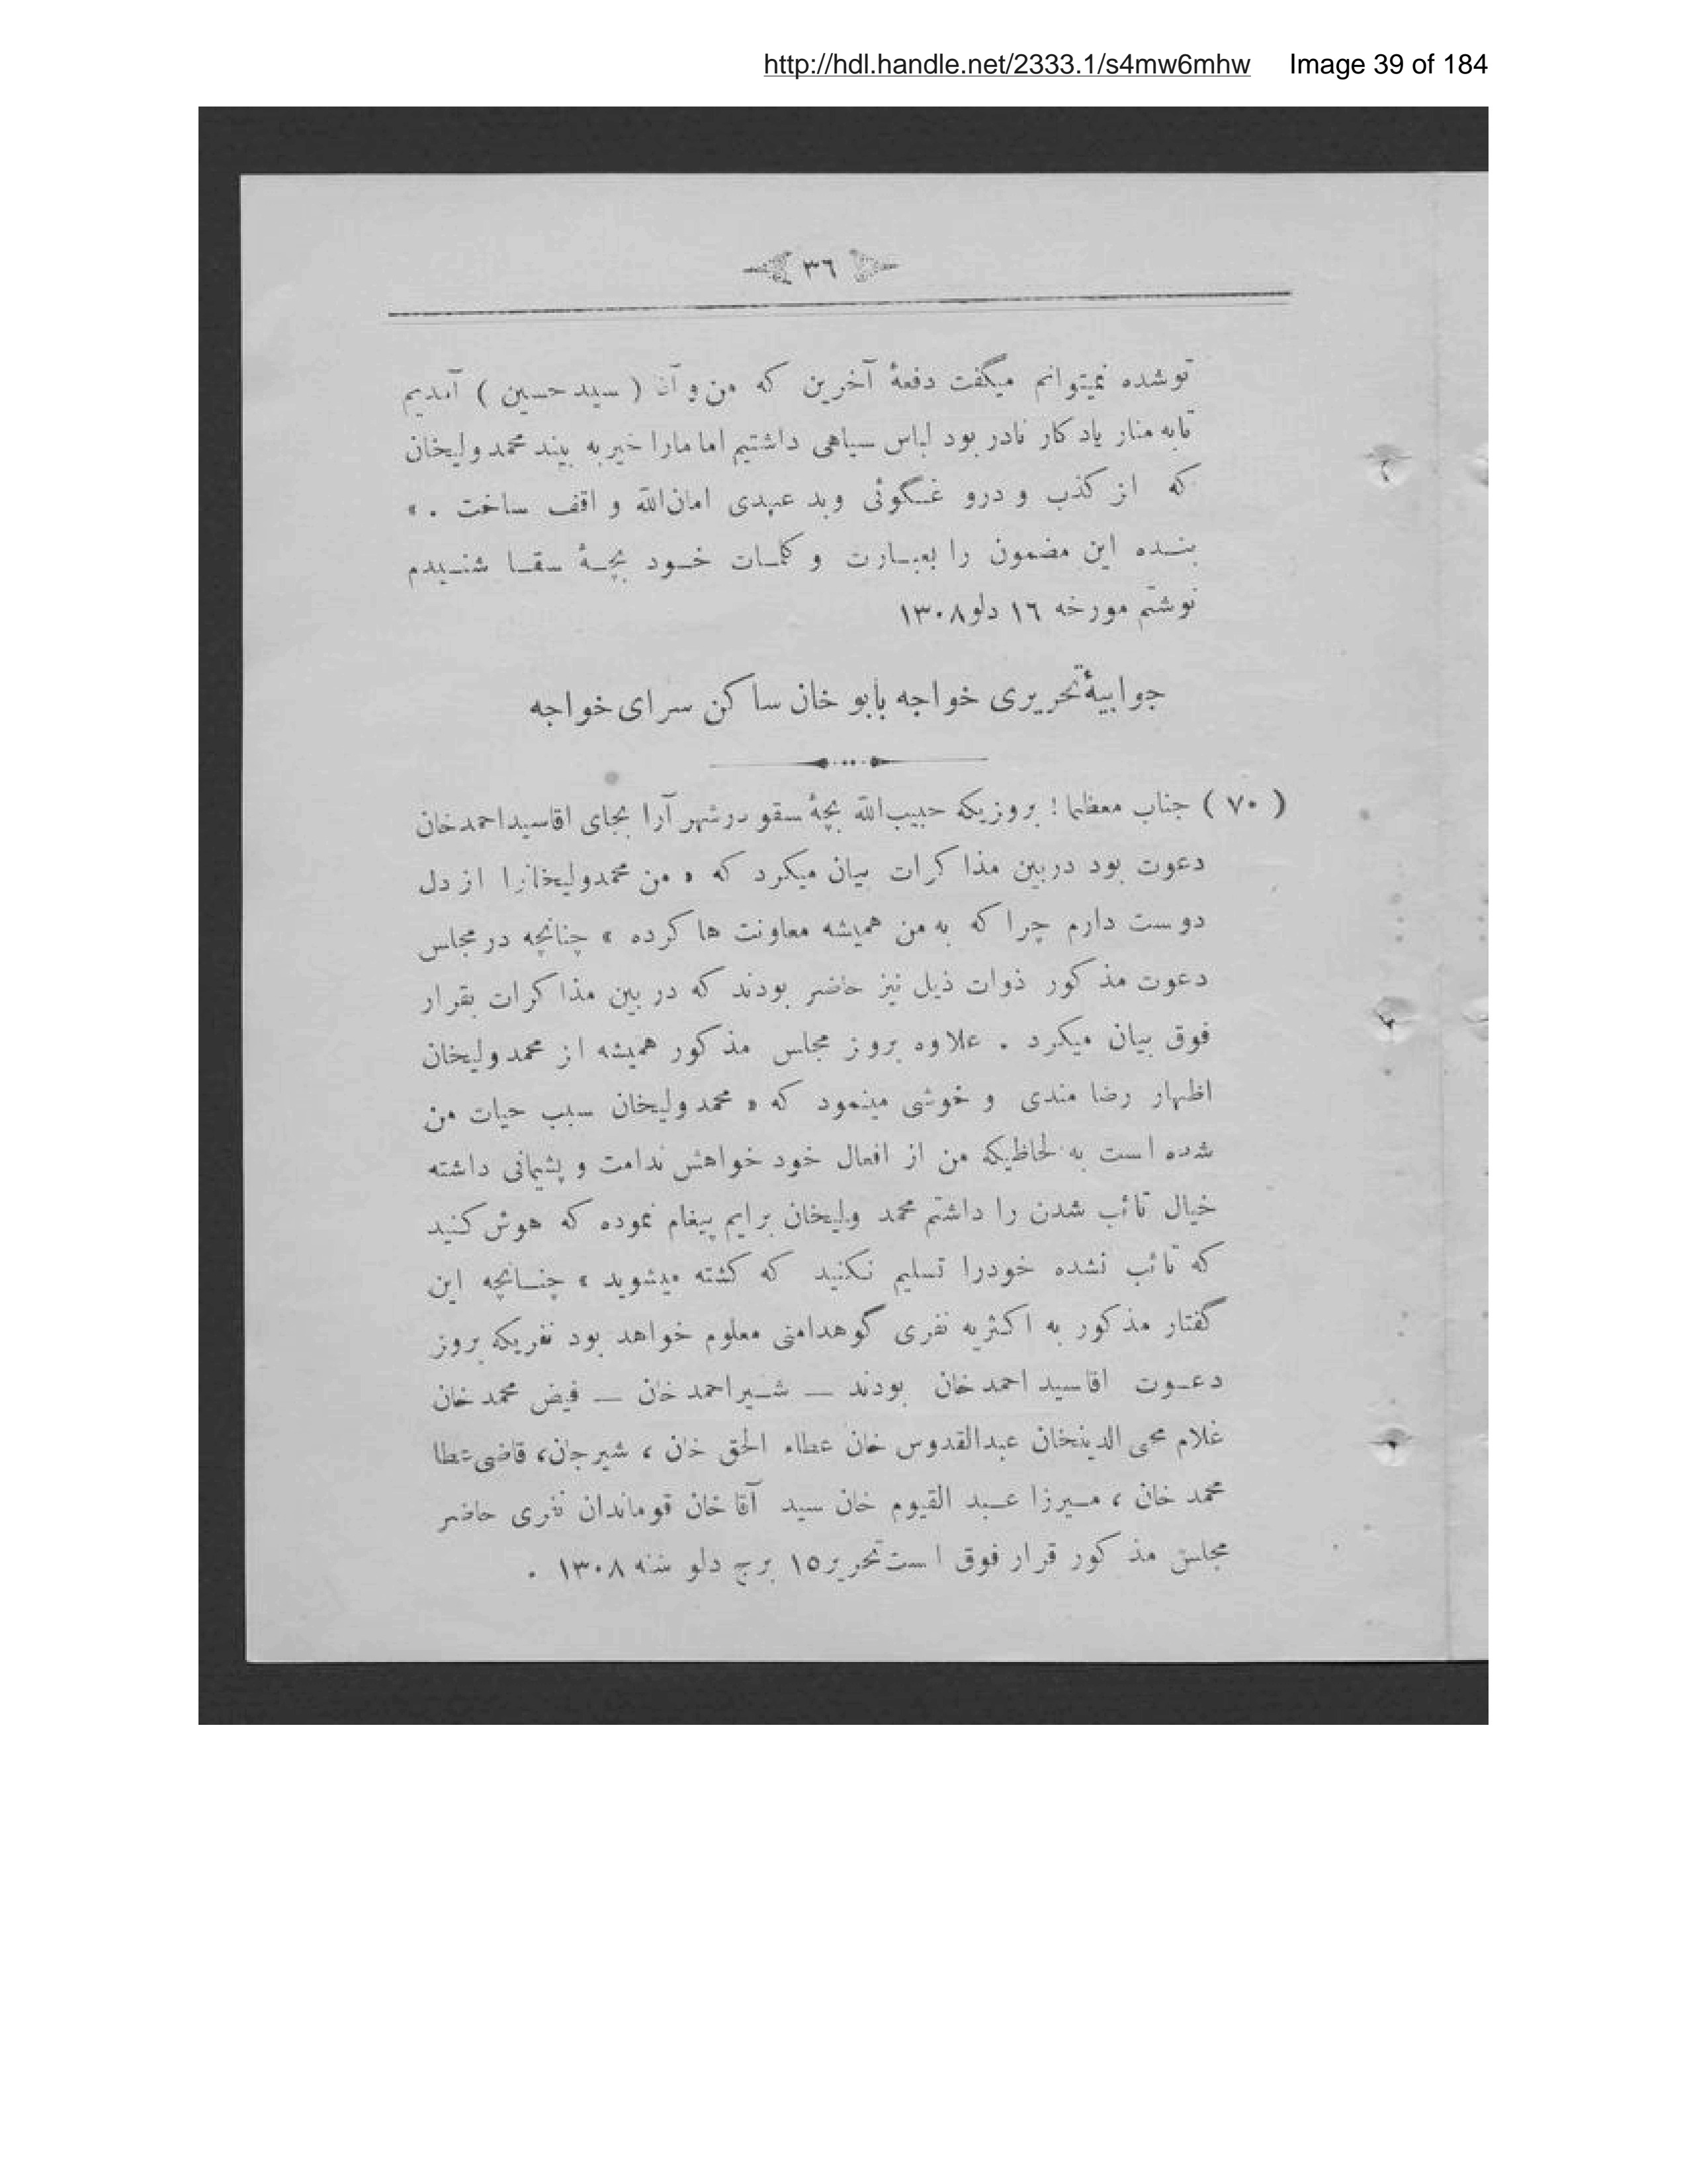 http://hdl.handle.net/2333.1/s4mw6mhw Image 39 of 184
٣٦
توشده نمیتوانم میگفت دفعهٔ آخرین که من و آن ( سید حسین ) آمدیم
تابه منار یادکار نادر بود لباس سیاهی داشتیم اما مارا خیر به بیند محمد ولیخان
که از کذب و درو غگوئی وبد عهدی امان‌الله و اقف ساخت . »
بنده این مضمون را بعبارت و کلمات خود بچهٔ سقا شنیدم
نوشتم مورخه ١٦ دلو ١٣٠٨
جوابیهٔ تحریری خواجه بابو خان ساکن سرای خواجه
( ٧٠ ) جناب معظما ! بروزیکه حبیب‌الله بچهٔ سقو درشهر آرا بجای اقاسید احمد خان
دعوت بود دربین مذاکرات بیان میکرد که « من محمدولیخانرا از دل
دوست دارم چراکه به من همیشه معاونت ها کرده » چنانچه در مجلس
دعوت مذکور ذوات ذیل نیز حاضر بودند که در بین مذاکرات بقرار
فوق بیان میکرد . علاوه بروز مجلس مذکور همیشه از محمد ولیخان
اظهار رضا مندی و خوشی مینمود که « محمد ولیخان سبب حیات من
شده است به لحاظیکه من از افعال خود خواهش ندامت و پشیمانی داشته
خیال تائب شدن را داشتم محمد ولیخان برایم پیغام نموده که هوش کنید
که تائب نشده خودرا تسلیم نکنید که کشته میشوید » چنانچه این
گفتار مذکور به اکثریه نفری کوهدامنی معلوم خواهد بود نفریکه بروز
دعوت اقاسید احمد خان بودند — شیراحمد خان — فیض محمد خان
غلام محی الدینخان عبدالقدوس خان عطاء الحق خان ، شیرجان، قاضی عطا
محمد خان ، میرزا عبد القیوم خان سید آقا خان قوماندان نفری حاضر
مجلس مذکور قرار فوق است تحریر ١٥ برج دلو سنه ١٣٠٨ .